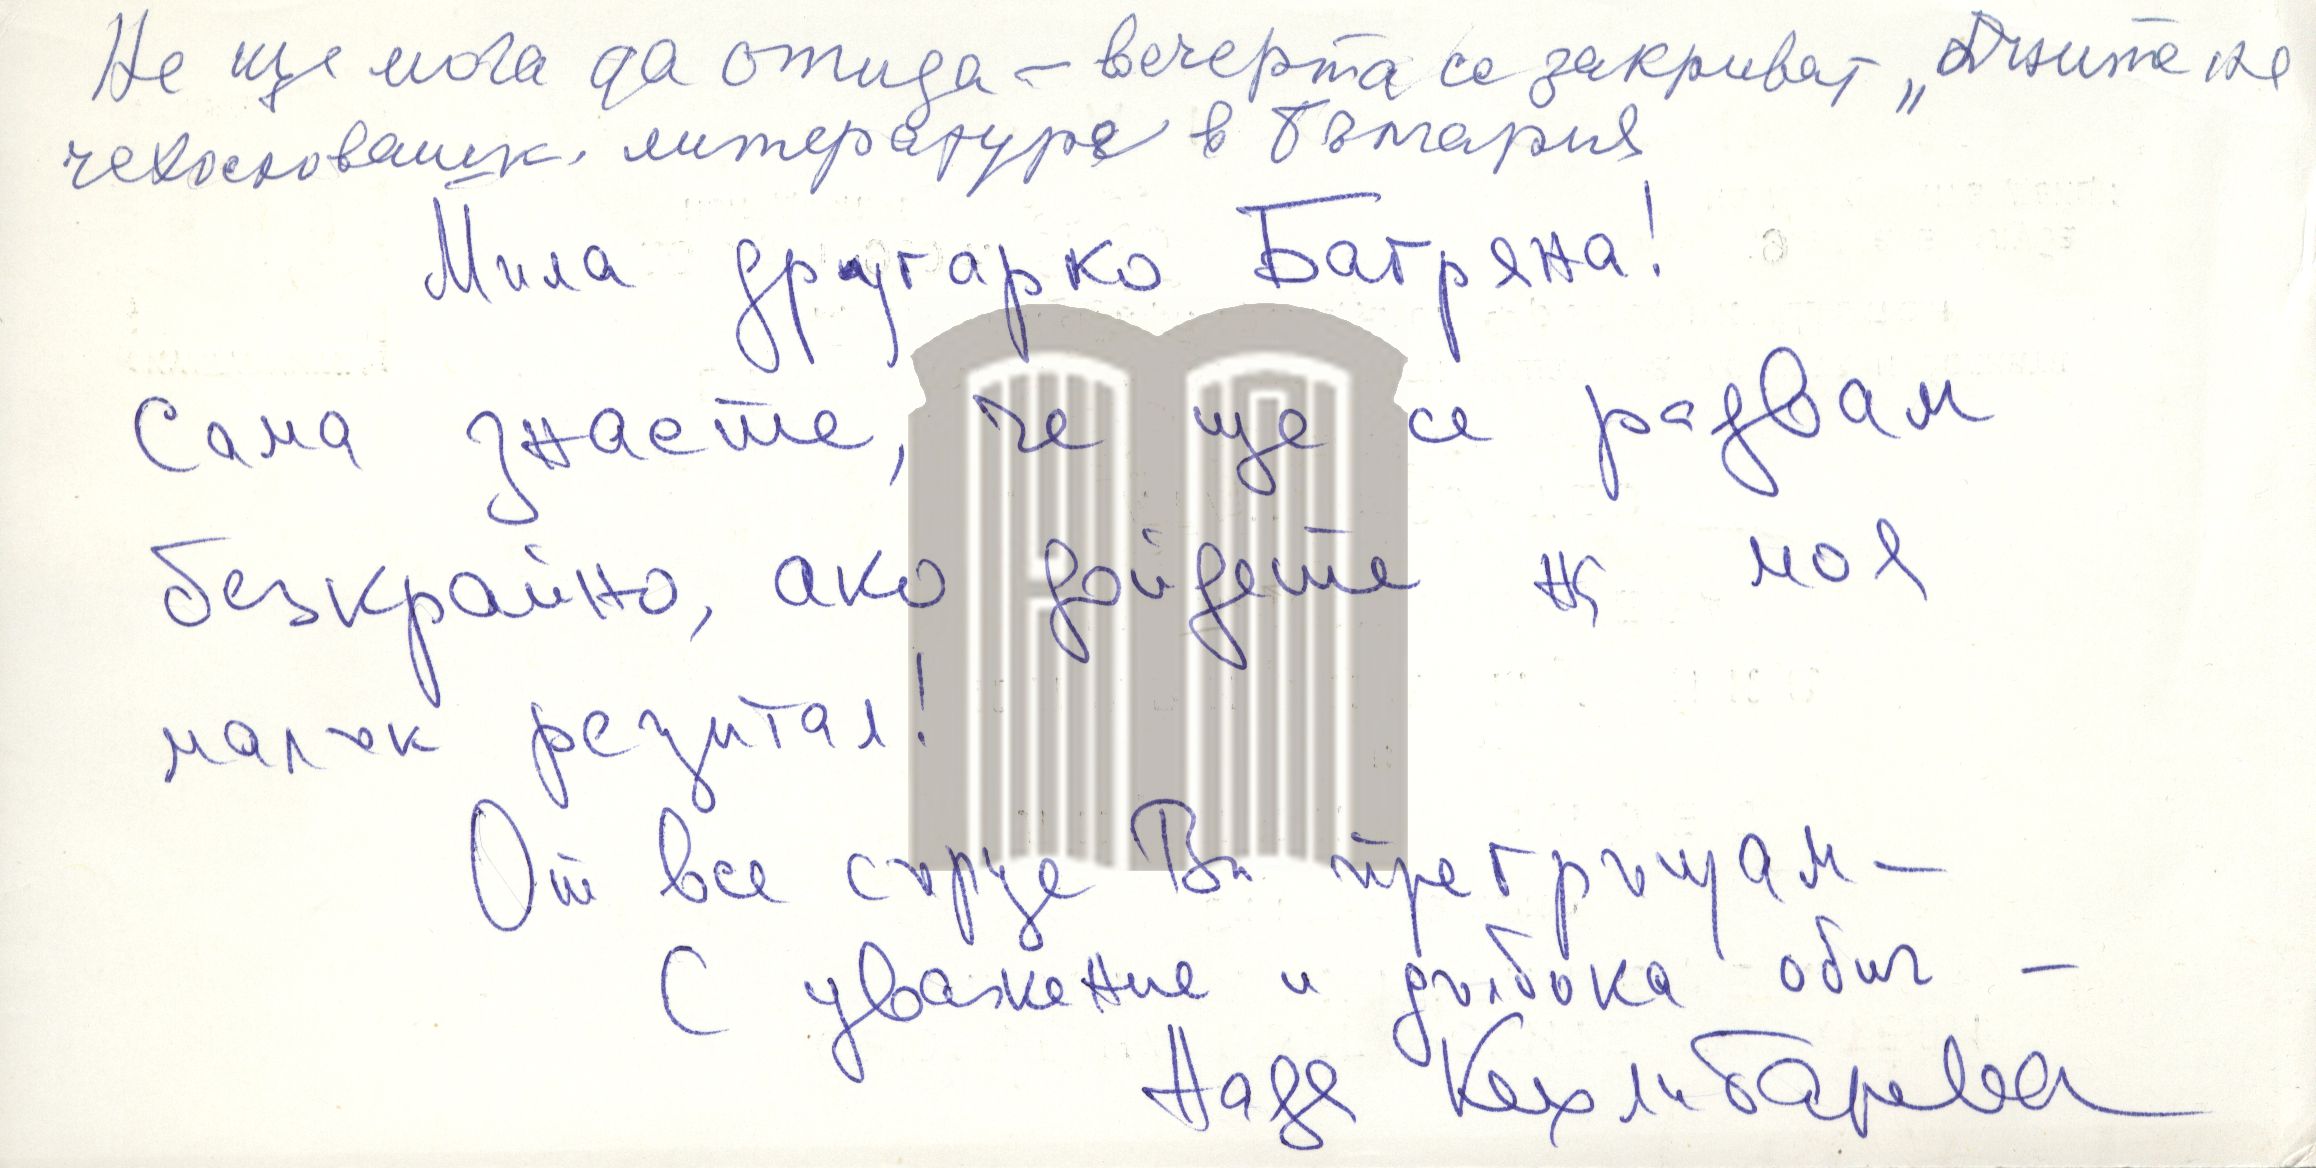 Не ще мога да отида – вечерта се закриват „Дните на
чехословашк. литература в България
Мила другарко Багряна!
Сама знаете, че ще се радвам
безкрайно, ако дойдете на моя
малък рецитал!
От все сърце Ви прегръщам –
С уважение и дълбока обич –
Надя Кехлибарева